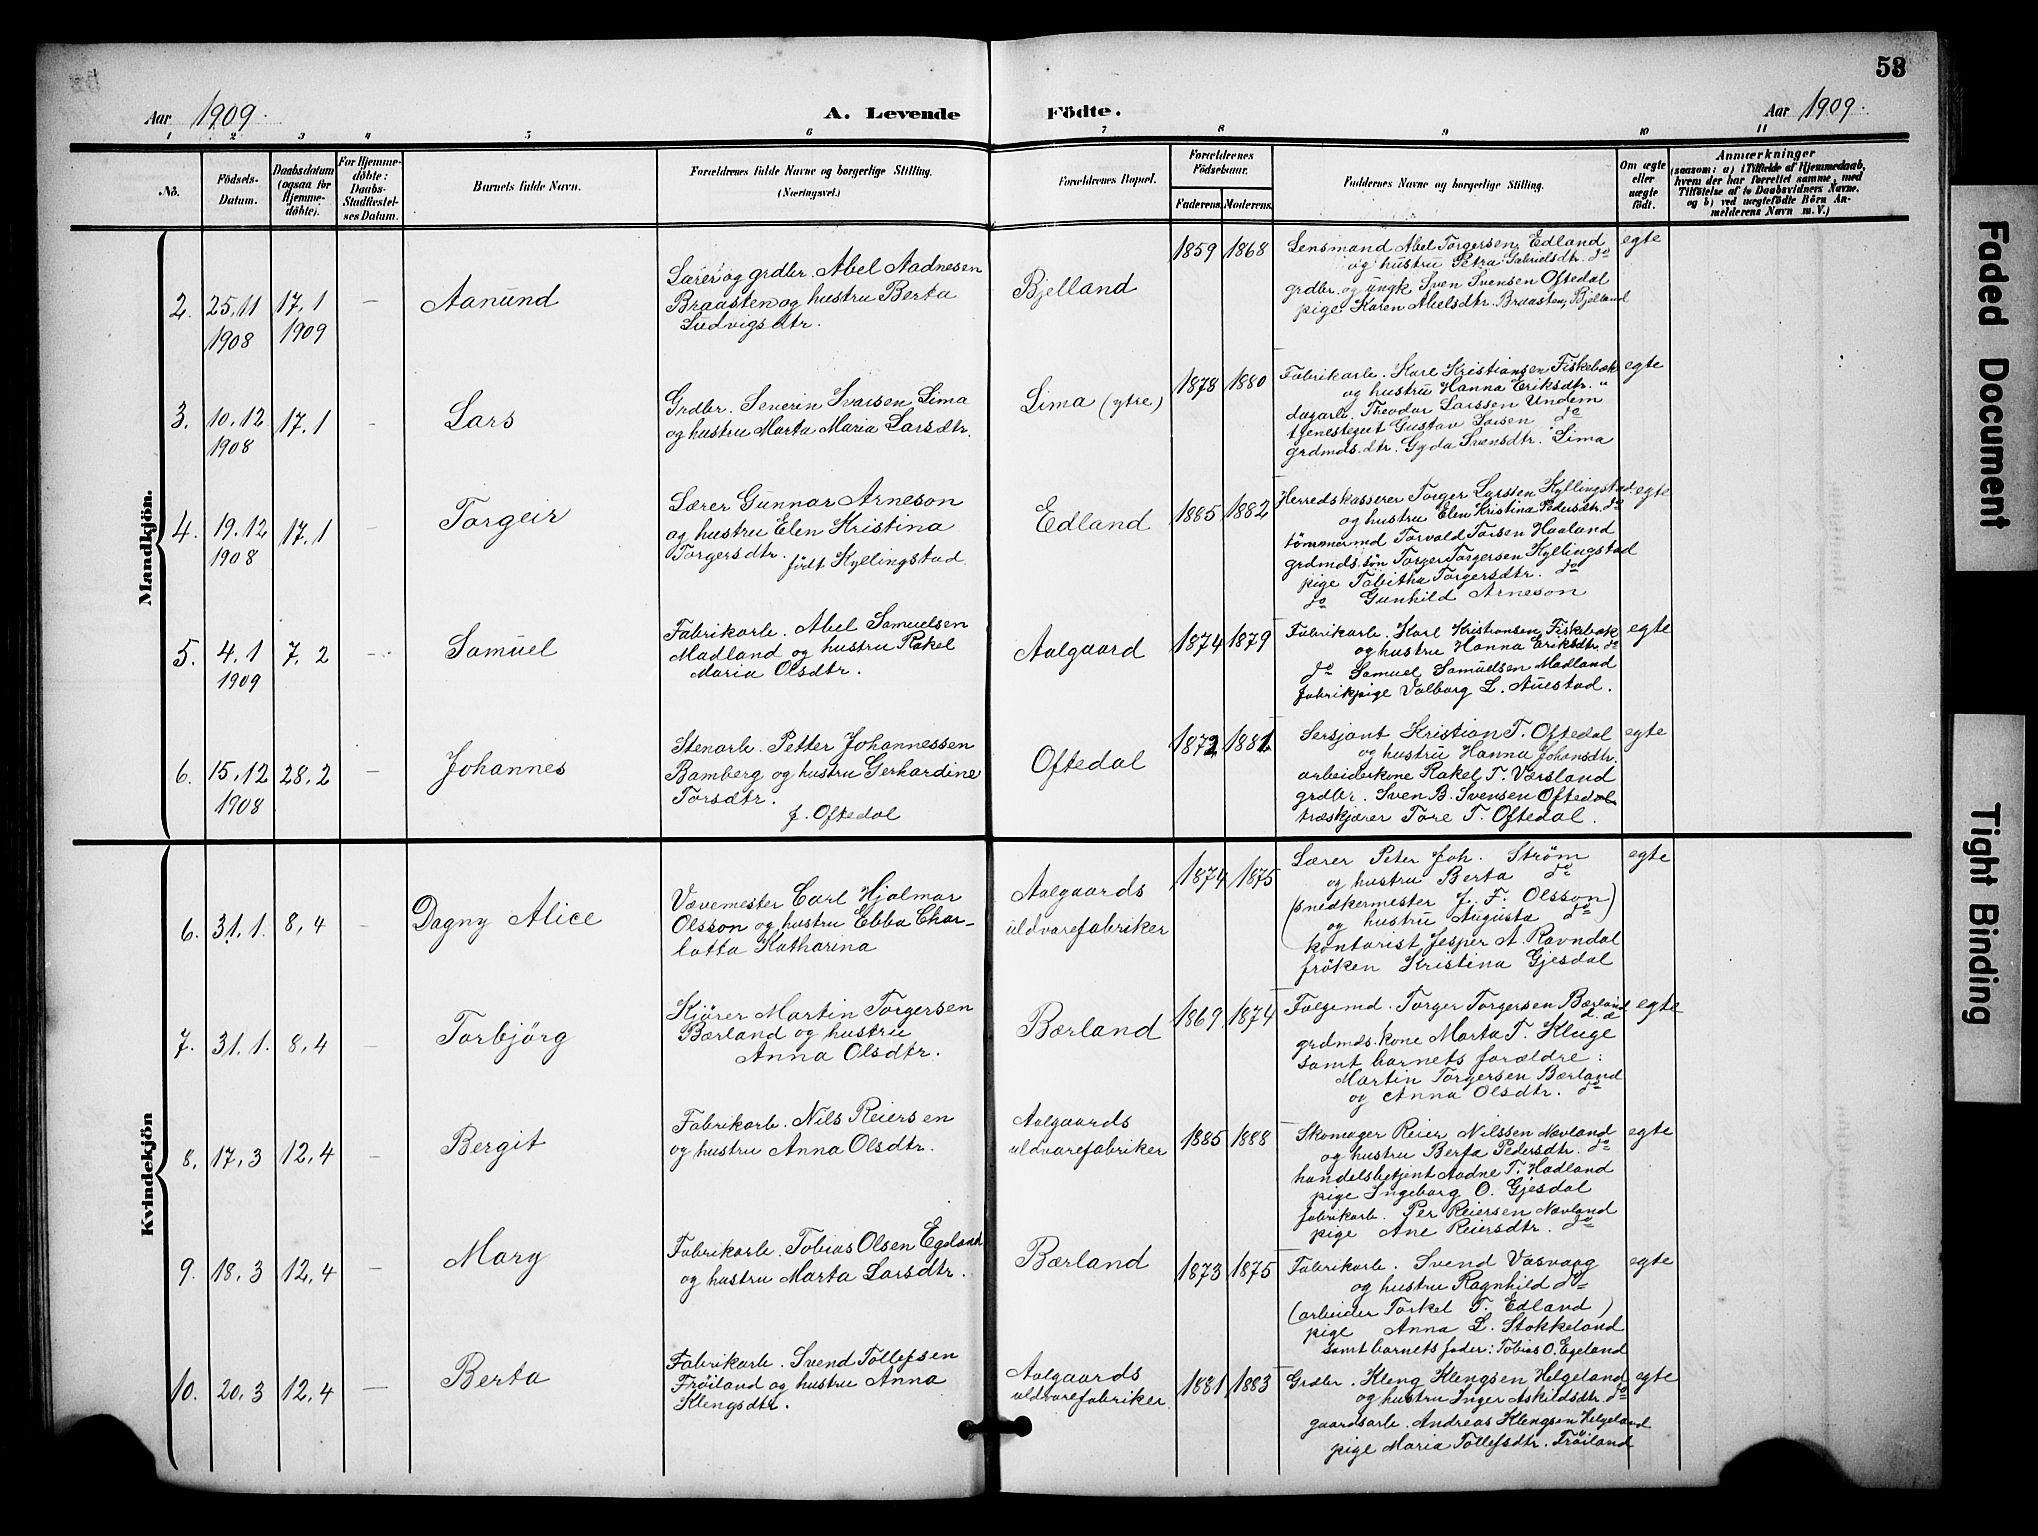 53
Aar 1909.
A. Levende
Födte.
Aar 1909.
1 2 3 4 5 6 7 8 9 10 11
No.
Födsels-Datum.
Daabsdatum (ogsaa for Hjemme-döbte).
For Hjemme-döbte: Daabs-Stadfæstelses Datum.
Barnets fulde Navn.
Forældrenes fulde Navne og borgerlige Stilling. (Næringsvei.)
Forældrenes Bopæl.
Forældrenes Födselsaar.
Faderens. Moderens.
Faddernes Navne og borgerlige Stilling.
Om ægte eller uægte födt.
Anmærkninger
(saasom: a) i Tilfælde af Hjemmedaab, hvem der har forrettet samme, med Tilföielse af to Daabsvidners Navne, og b) ved uægtefödte Börn Anmelderens Navn m. V.)
Mandkjön.
2. 25.11 1908 17.1 1909 — Aanund
Lærer og grdbr. Abel Aadnesen
Braasten og hustru Berta
Ludvigsdtr.
Bjelland 1859 1868
Lensmand Abel Torgersen Edland
og hustru Petra Gabrielsdtr. do
grdbr. og ungk. Sven Svensen Oftedal
pige Karen Abelsdtr. Braasten, Bjelland
egte
3. 10.12 1908 17.1 - Lars
Grdbr. Severin Svarsen Lima
og hustru Marta Maria Larsdtr.
Lima (ytre) 1878 1880
Fabrikarb. Karl Kristiansen Fiskebæk
og hustru Hanna Eriksdtr. "
dagarb. Theodor Larssen Undem
tjenestegut Gustav Larsen do
grdmds.dtr. Gyda Svensdtr. Lima
egte
4. 19.12 1908 17.1 - Torgeir
Lærer Gunnar Arneson
og hustru Elen Kristina
Torgersdtr. født Kyllingstad
Edland 1885 1882
Herredskasserer Torger Larsen Kyllingstad
og hustru Elen Kristina Pedersdtr. do
tömmermd Torvald Torsen Haaland
grdmds.sön Torger Torgersen Kyllingstad
pige Tabitha Torgersdtr. do
do Gunhild Arneson
egte
5. 4.1 1909 7.2 - Samuel
Fabrikarb. Abel Samuelsen
Madland og hustru Rakel
Maria Olsdtr.
Aalgaard 1874 1879
Fabrikarb. Karl Kristiansen Fiskebæk
og hustru Hanna Eriksdtr. do
do Samuel Samuelsen Madland
fabrikpige Valborg L. Auestad.
egte
6. 15.12 1908 28.2 — Johannes
Stenarb. Petter Johannessen
Bamberg og hustru Gerhardine
Torsdtr.
f. Oftedal
Oftedal 1872 1881
Sersjant Kristian T. Oftedal
og hustru Hanna Johansdtr.
arbeiderkone Rakel T. Værsland
grdbr. Sven B. Svensen Oftedal
træskjærer Tore T. Oftedal.
egte
Kvindekjön
6. 31.1. 8.4 — Dagny Alice
Vævemester Carl Hjalmar
Olsson og hustru Ebba Char-
lotta Katharina
Aalgaards
uldvarefabriker
1874 1875
Lærer Peter Joh. Strøm
og hustru Berta do
(snedkermester J. F. Olsson)
og hustru Augusta do
kontorist Jesper A. Ravndal
frøken Kristina Gjesdal
egte
7. 31.1. 8.4 — Torbjörg
Kjører Martin Torgersen
Bærland og hustru
Anna Olsdtr.
Bærland 1869 1874
Folgemd. Torger Torgersen Bærland
grdmds.kone Marta T. Kluge
samt barnets forældre:
Martin Torgersen Bærland
og Anna Olsdtr. do
egte
8. 17.3 12.4 — Bergit
Fabrikarb. Nils Reiersen
og hustru Anna Olsdtr.
Aalgaards
uldvarefabriker
1885 1888
Skomager Reier Nilssen Nævland
og hustru Berta Pedersdtr. do
handelsbetjent Aadne T. Hadland
pige Ingeborg O. Gjesdal
fabrikarb. Per Reiersen Nævland
pige Ane Reiersdtr. do
egte
9. 18.3 12.4 — Mary
Fabrikarb. Tobias Olsen Egeland
og hustru Marta Larsdtr.
Bærland 1873 1875
Fabrikarb. Svend Vasvaag
og hustru Ragnhild do
(arbeider Torkel T. Edland)
pige Anna L. Stokkeland
samt barnets fader: Tobias O. Egeland
egte
10. 20.3 12.4 — Berta
Fabrikarb. Svend Tollefsen
Frøiland og hustru Anna
Klengsdtr.
Aalgaards
uldvarefabriker.
1881 1883
Grdbr. Kleng Klengsen Helgeland
og hustru Inger Askildsdtr. do
gaardsarb. Andreas Klengsen Helgeland
pige Maria Tollefsdtr. Frøiland
egte
Faded Document
Tight Binding